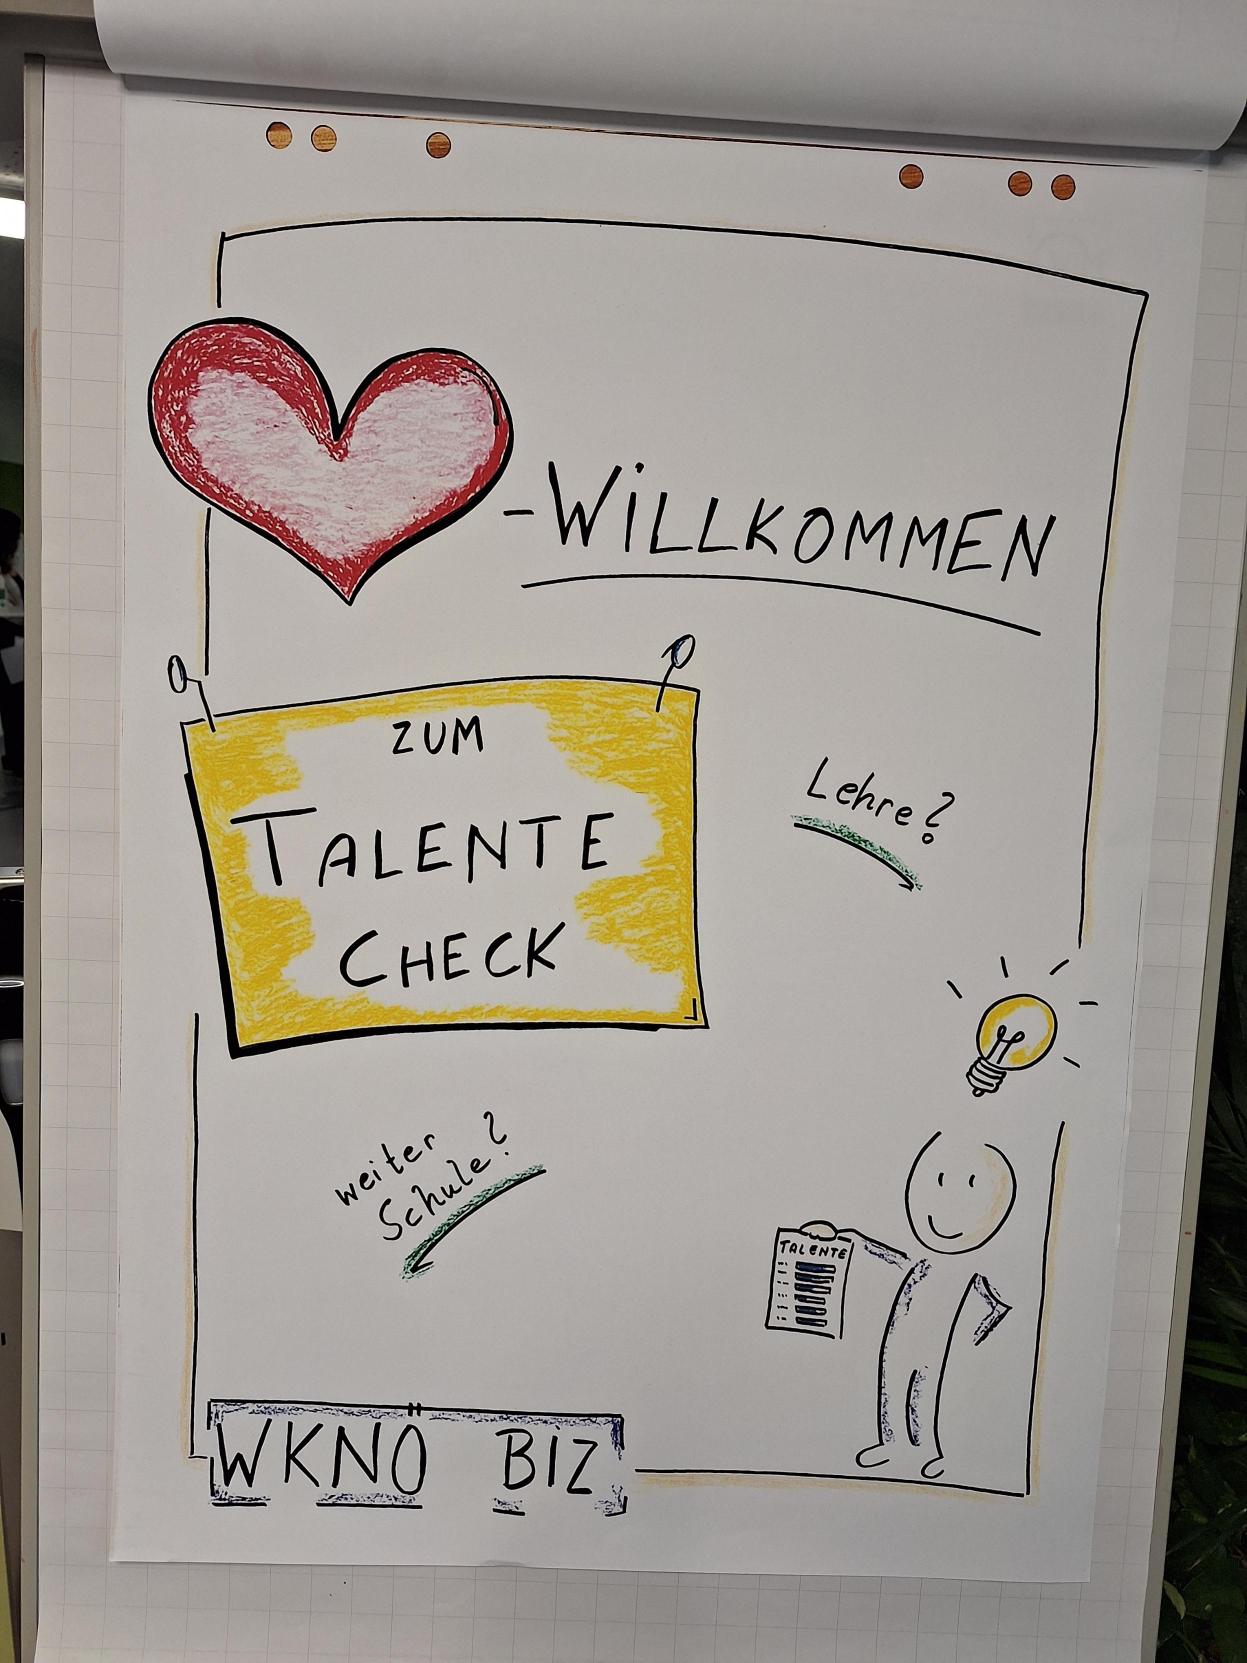 -WiLLKOMMEN
ZUM
TALENTE
CHECK
Lehre?
weiter
Schule?
TALENTE
WKNÖ BIZ